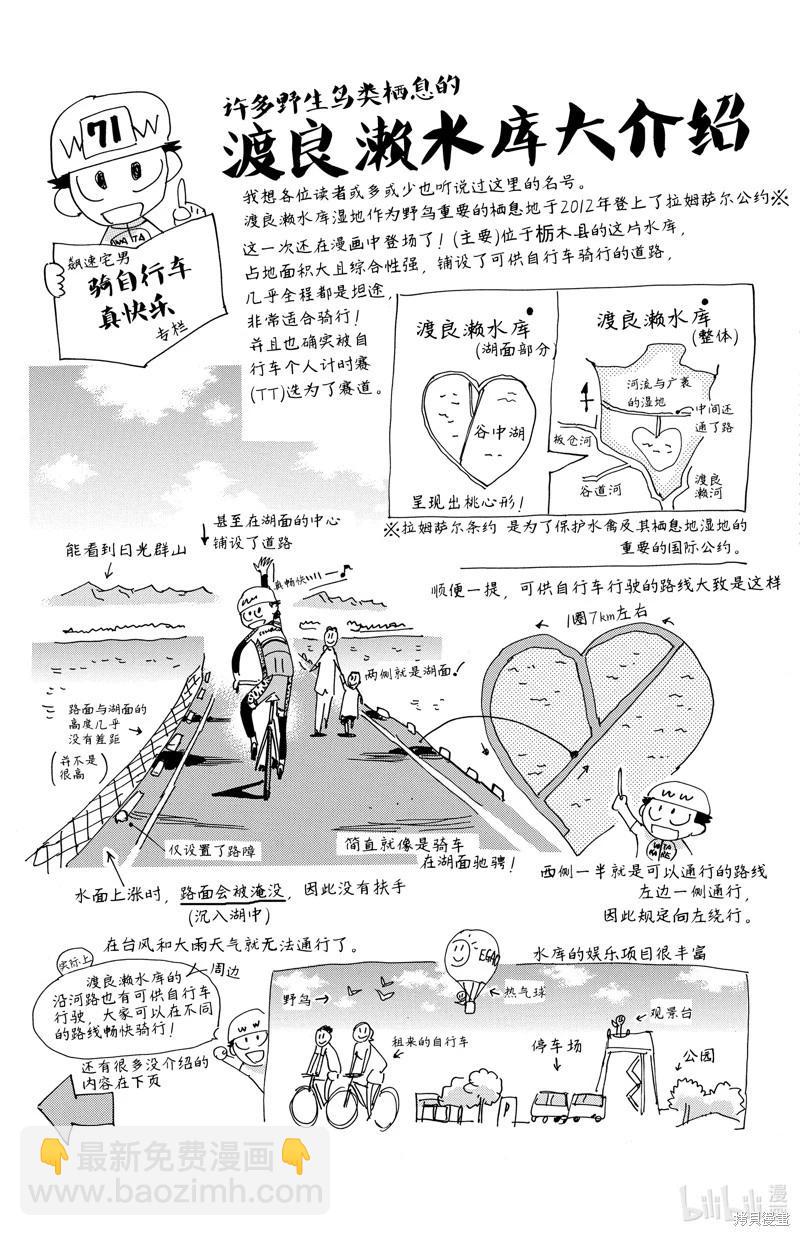 许多野生鸟类栖息的
渡良濑水库大介绍
71
飙速宅男
骑自行车
真快乐
专栏
我想各位读者或多或少也听说过这里的名号。
渡良濑水库湿地作为野鸟重要的栖息地于2012年登上了拉姆萨尔公约※
这一次还在漫画中登场了！(主要)位于栃木县的这片水库，
占地面积大且综合性强，铺设了可供自行车骑行的道路，
几乎全程都是坦途，
非常适合骑行！
并且也确实被自
行车个人计时赛
(TT)选为了赛道。
渡良濑水库
(湖面部分)
谷中湖
呈现出桃心形！
渡良濑水库
(整体)
河流与广袤
的湿地
中间还
通了路
板仓河
谷道河
渡良
濑河
※拉姆萨尔条约 是为了保护水禽及其栖息地湿地的
重要的国际公约。
甚至在湖面的中心
铺设了道路
能看到日光群山
真畅快
两侧就是湖面！
路面与湖面的
高度几乎
没有差距
(并不是
很高)
仅设置了路障
简直就像是骑车
在湖面驰骋！
水面上涨时，路面会被淹没，因此没有扶手
(沉入湖中)
在台风和大雨天气就无法通行了。
顺便一提，可供自行车行驶的路线大致是这样
1圈7km左右
西侧一半就是可以通行的路线
左边一侧通行，
因此规定向左绕行。
实际上
渡良濑水库的周边
沿河路也有可供自行车
行驶，大家可以在不同
的路线畅快骑行！
还有很多没介绍的
内容在下页
水库的娱乐项目很丰富
EGAO
野鸟
热气球
租来的自行车
停车场
P
观景台
公园
👇最新免费漫画👇
www.baozimh.com
bilibili漫画
拷貝漫畫